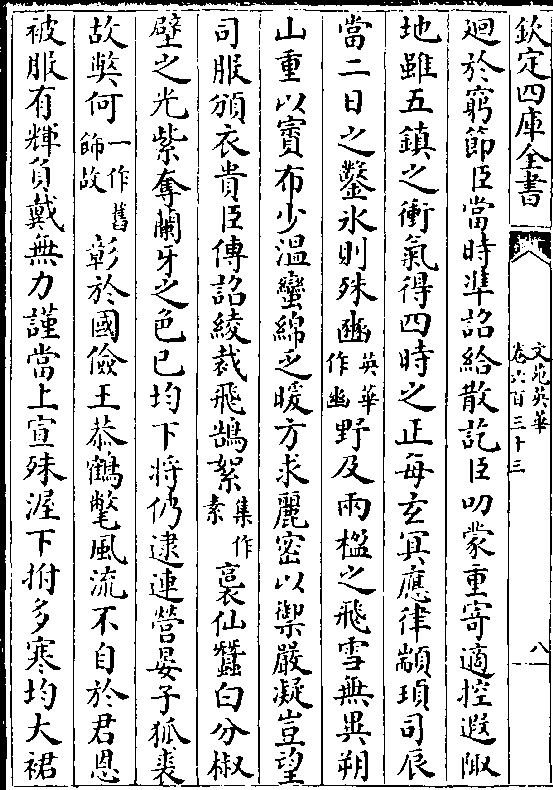 欽定四庫全書
文苑英華
卷六百三十三
八
迴於窮節臣當時準詔給散訖臣叨蒙重寄適控遐陬
地雖五鎮之衝氣得四時之正每玄冥應律顓頊司辰
當二日之鑿冰則殊豳英華作幽野及兩楹之飛雪無異朔
山重以賨布少温蠻綿乏暖方求麗密以禦嚴凝豈望
司服頒衣貴臣傳詔綾裁飛鵠絮集作素裛仙蠶白分椒
壁之光紫奪蘭牙之色已均下將仍逮連營晏子狐裘
故弊何一作舊師故彰於國儉王恭鶴氅風流不自於君恩
被服有輝負戴無力謹當上宣殊渥下拊多寒均大裙